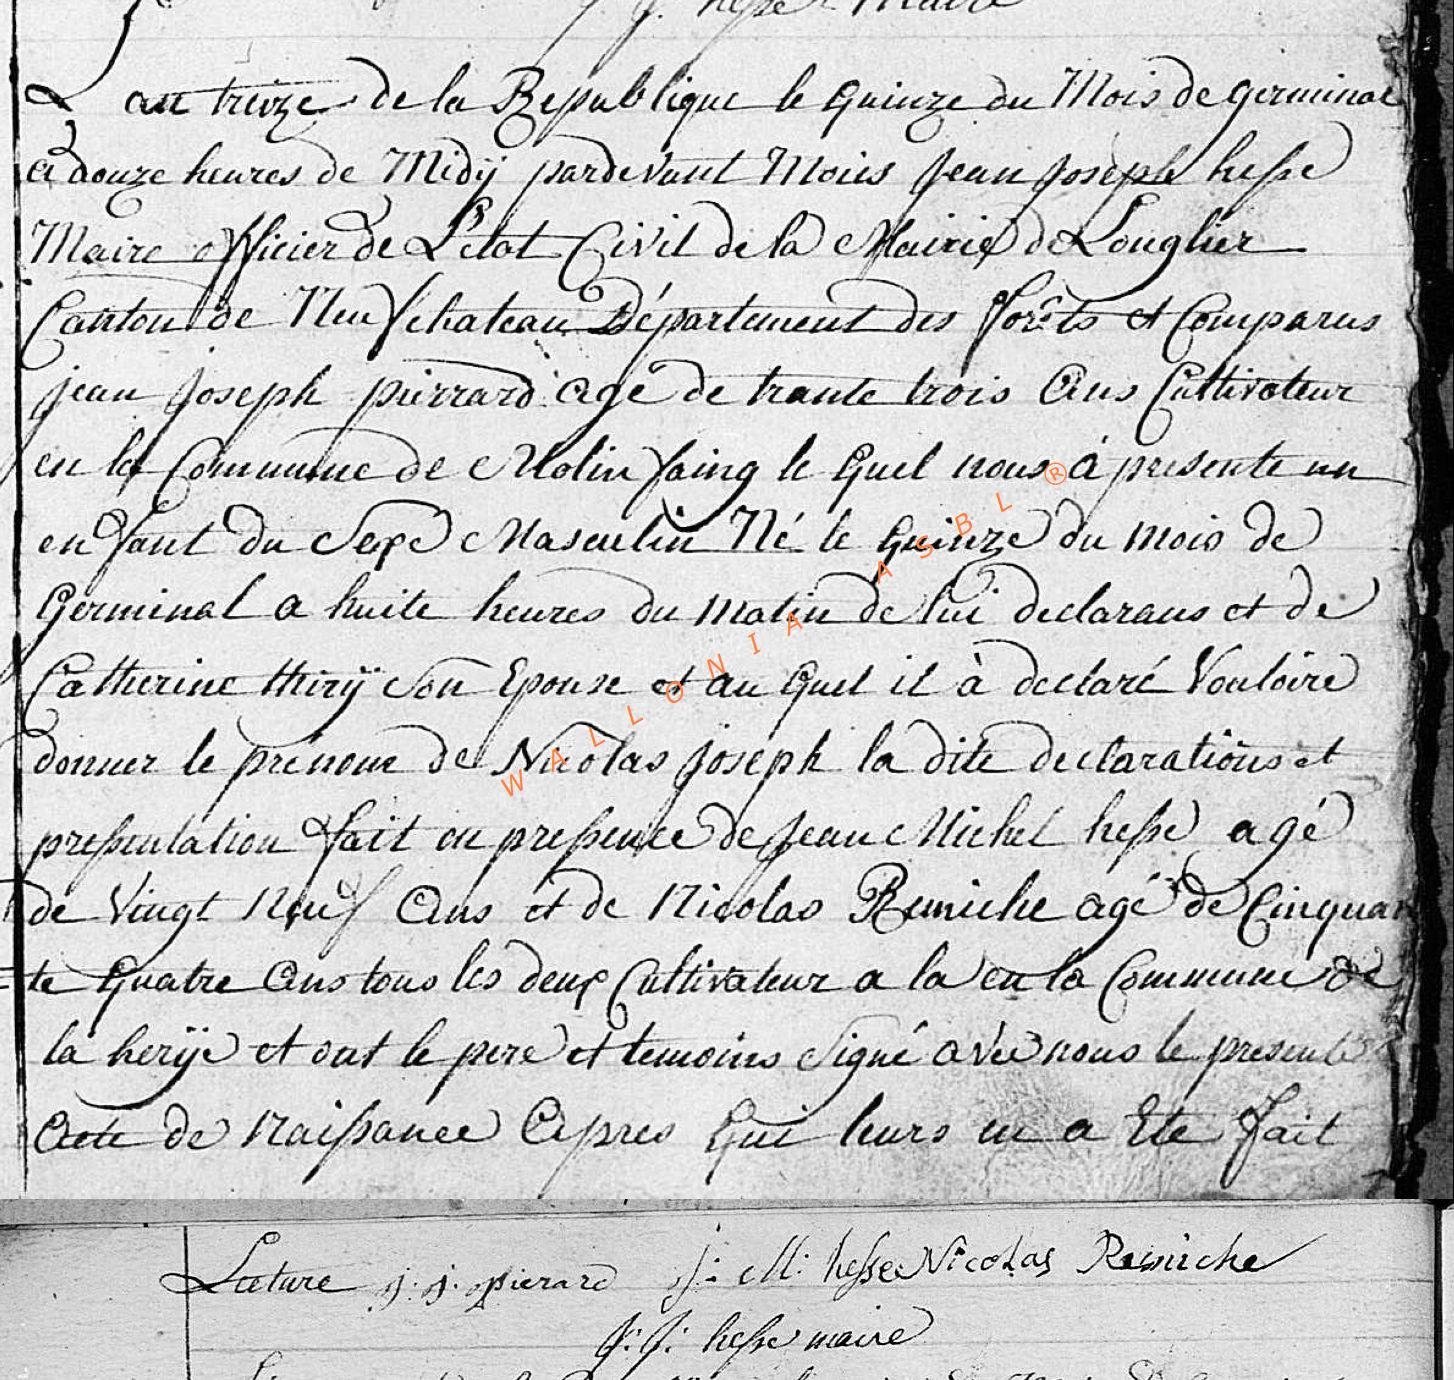 J. J. hesse Maire
L an treize de la Republique le quinze du Mois de germinal
a douze heures de Midÿ pardevant Mous Jean Joseph hesse
Maire officier de L'etat Civil de la Mairie de Longlier
Canton de Neufchateau Département des forêts et Comparus
jean Joseph pierrard agé de trante trois Ans Cultivateur
en la Commune de Molinfaing le quel nous à presente un
enfant du Sexe Masculin Né le quinze du mois de
Germinal a huite heures du matin de lui declarans et de
Catherine thirÿ Son Epouse et au quel il à declaré Vouloire
donner le prénom de Nicolas Joseph la dite declarations et
pressentation fait en pressence de Jean Michel hesse agé
de Vingt Neuf Ans et de Nicolas Reuniche agé de Cinquan
te quatre Ans tous les deux Cultivateur a la en la Commune de
la herÿe et ont le pere et temoins Signé avec nous le present
Acte de Naissance Apres qui leurs en a Ete fait
Lecture j. j. pierard J: M: hesse Nicolas Reiniche
J: J: hesse maire
WALLONIA ASBL ®